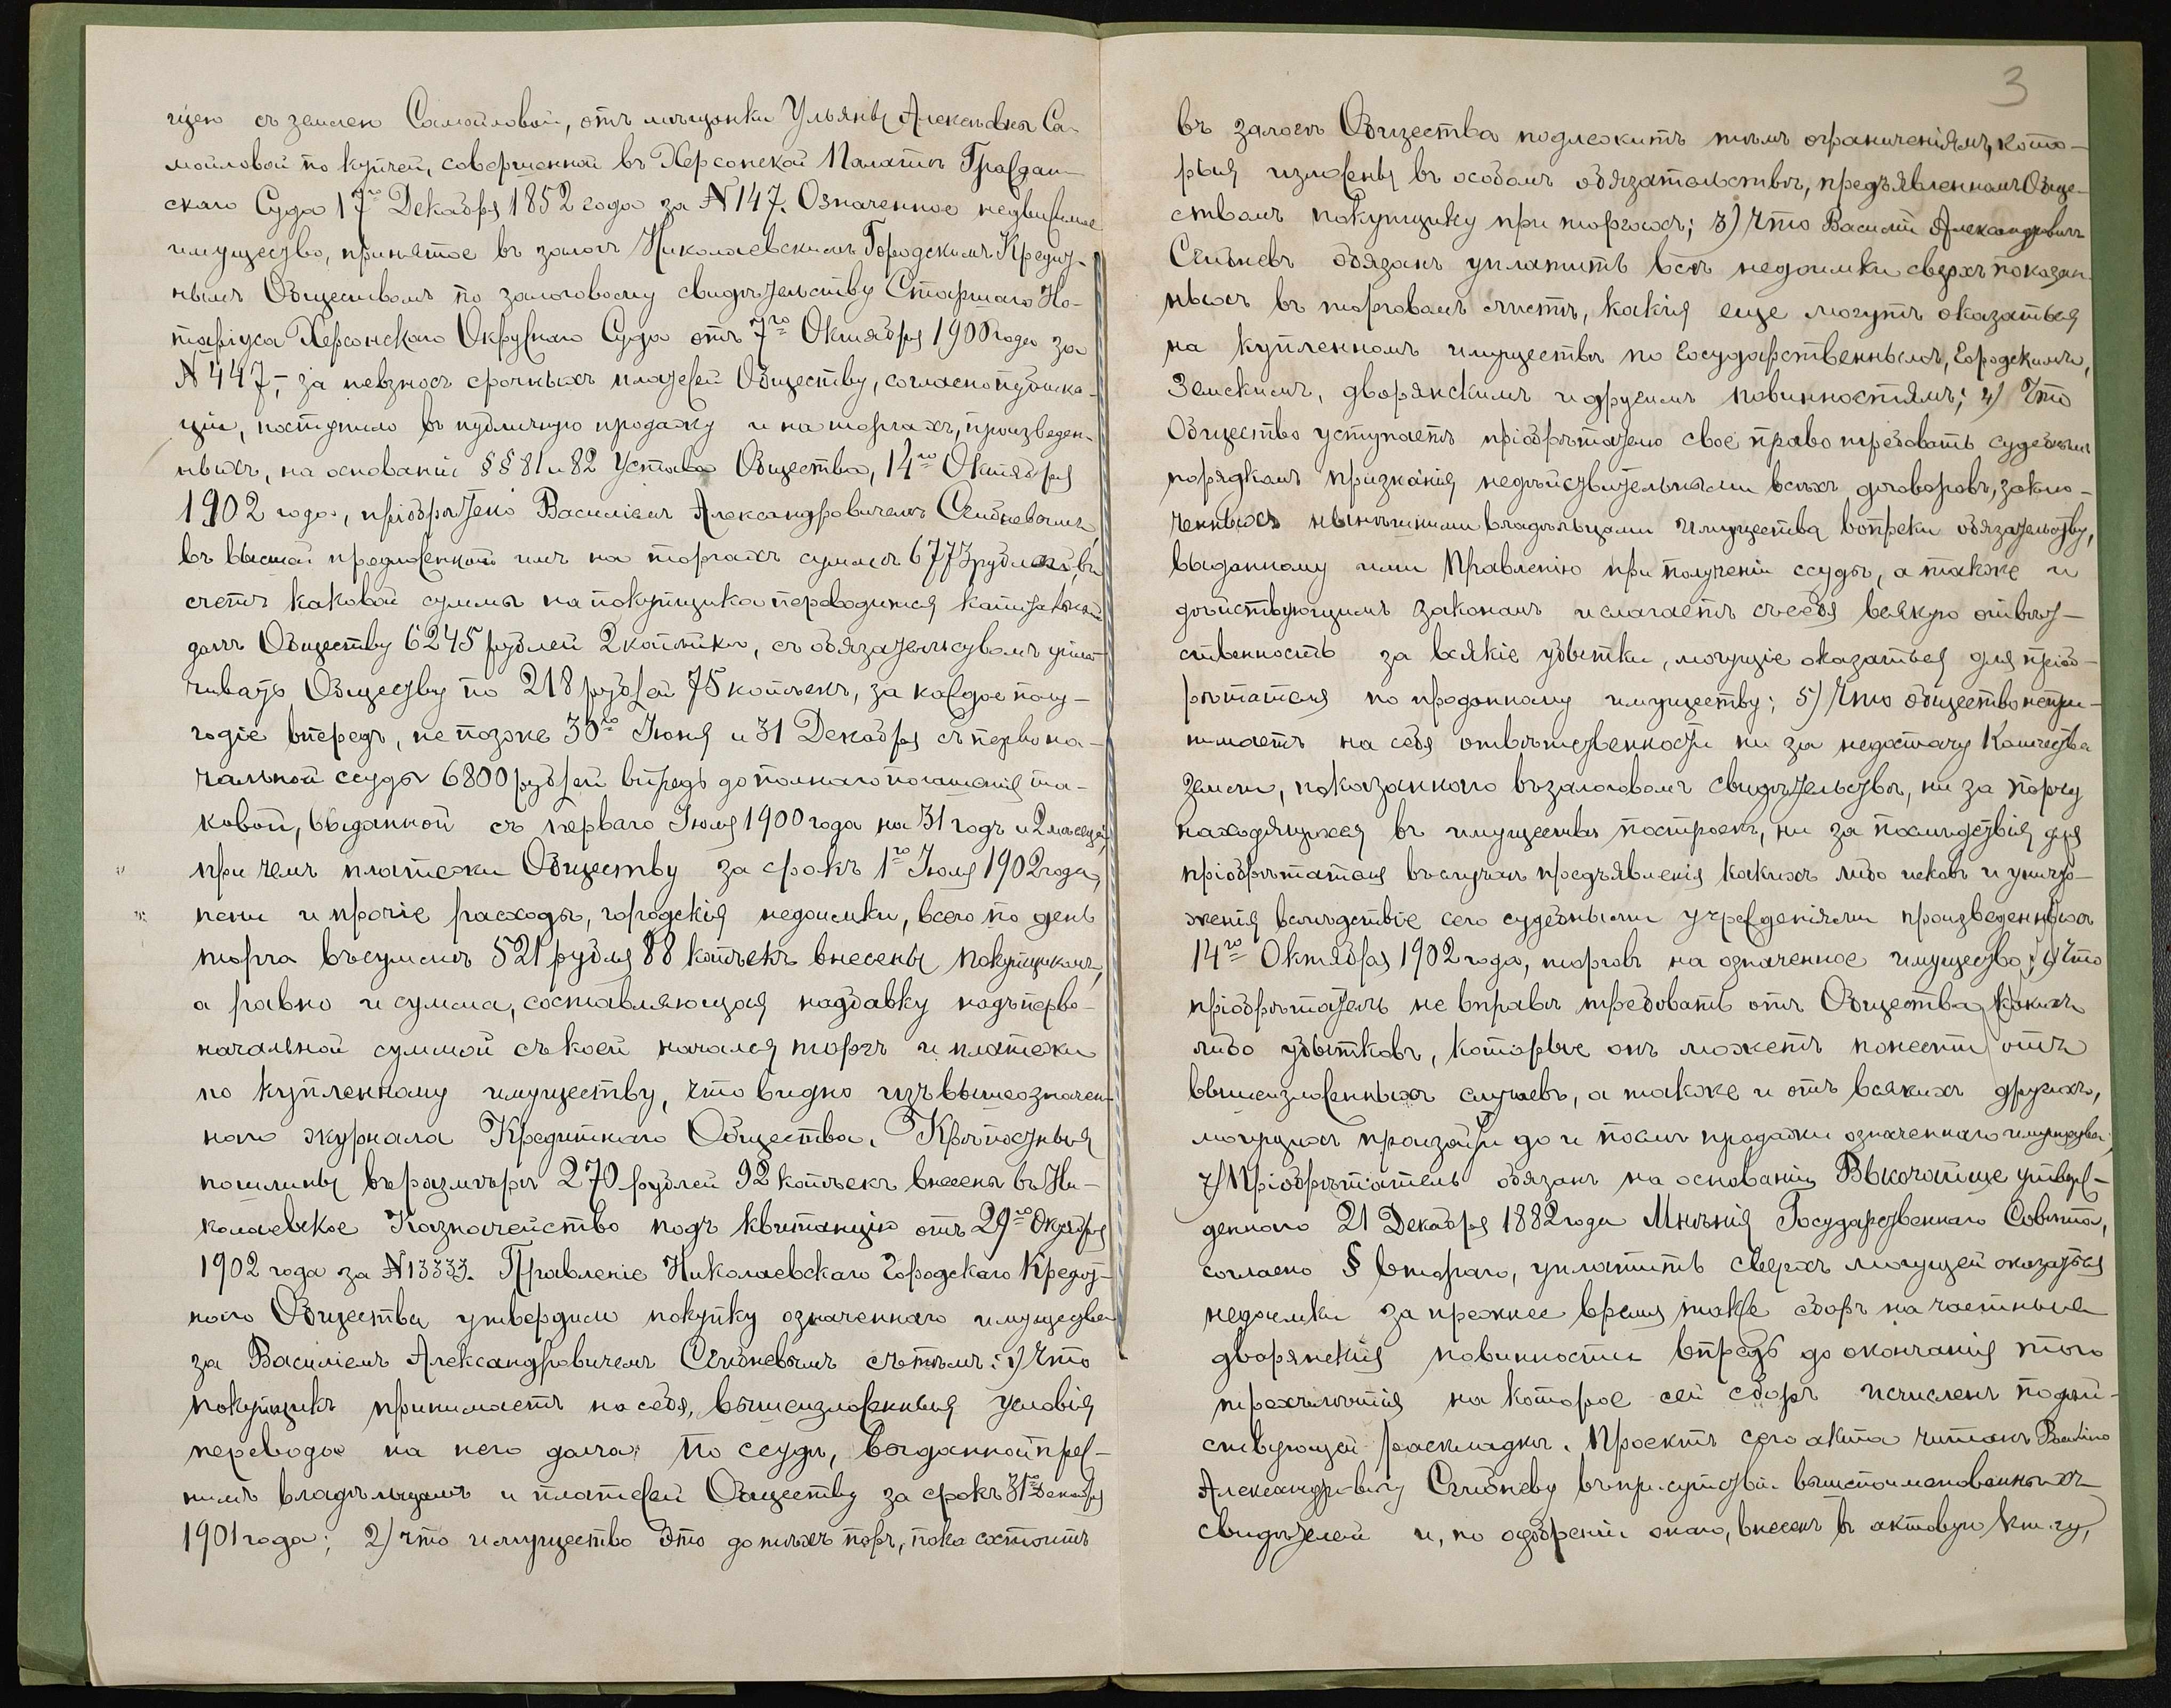 щею съ землею Самойловой, отъ мѣщанки Ульяны Алексѣевны Са-
мойловой по купчей, совершенной въ Херсонской Палатѣ Граждан-
скаго Суда 17го Декабря 1852 года за №147. Означенное недвижимое
имущество, принятое въ залогъ Николаевскимъ Городскимъ Кредит-
нымъ Обществомъ по залоговому свидѣтельству Старшаго Но-
таріуса Херсонскаго Окружнаго Суда отъ 7го Октября 1900 года за
№447, – за невзносъ срочныхъ платежей Обществу, согласно публика-
ціи, поступило въ публичную продажу и на торгахъ, произведен-
ныхъ, на основаніи §§ 81 и 82 Устава Общества, 14го Октября
1902 года, пріобрѣтено Василіемъ Александровичемъ Сгибневымъ,
въ высшей предложенной имъ на торгахъ суммѣ 6773 рублей, въ
счетъ каковой суммы на покупщика переводится капитальный
долгъ Обществу 6245 рублей 2 копѣйки, съ обязательствомъ упла-
чивать Обществу по 218 рублей 75 копѣекъ, за каждое полу-
годіе впередъ, не позже 30го Іюня и 31 Декабря съ первона-
чальной ссуды 6800 рублей впредь до полнаго погашенія та-
ковой, выданной съ перваго Іюля 1900 года на 31 годъ и 2 мѣсяца,
при чемъ платежи Обществу за срокъ 1го Іюля 1902 года,
пени и прочіе расходы, городскія недоимки, всего по день
торга въ суммѣ 521 рубля 88 копѣекъ внесены покупщикомъ,
а равно и сумма, составляющая надбавку надъ перво-
начальной суммой съ коей начался торгъ и платежи
по купленному имуществу, что видно изъ вышеозначен-
наго журнала Кредитнаго Общества. Крѣпостныя
пошлины въ размѣрѣ 270 рублей 92 копѣекъ внесены въ Ни-
колаевское Казначейство подъ квитанцію отъ 29го Октября
1902 года за №13333. Правленіе Николаевскаго Городскаго Кредит-
наго Общества утвердило покупку означеннаго имущества
за Василіемъ Александровичемъ Сгибневымъ съ тѣмъ: 1) Что
покупщикъ принимаетъ на себя, вышеизложенныя условія
перевода на него долга по ссудѣ, выданной преж-
нимъ владѣльцамъ и платежей Обществу за срокъ 31го Декабря
1901 года; 2) что имущество это до тѣхъ поръ, пока состоитъ
3
въ залогѣ Общества подлежитъ тѣмъ ограниченіямъ, кото-
рыя изложены въ особомъ обязательствѣ, предъявленномъ Обще-
ствомъ покупщику при торгахъ; 3) Что Василій Александровичъ
Сгибневъ обязанъ уплатить всѣ недоимки сверхъ показан-
ныхъ въ торговомъ листѣ, какія еще могутъ оказаться
на купленномъ имуществѣ по Государственнымъ, Городскимъ,
Земскимъ, дворянскимъ и другимъ повинностямъ; 4) Что
Общество уступаетъ пріобрѣтателю свое право требовать судебнымъ
порядкомъ признанія недѣйствительными всѣхъ договоровъ, заклю-
ченныхъ нынѣшними владѣльцами имущества вопреки обязательству,
выданному ими Правленію при полученіи ссуды, а также и
дѣйствующимъ законамъ и слагаетъ съ себя всякую отвѣт-
ственность за всякіе убытки, могущіе оказаться для пріоб-
рѣтателя по проданному имуществу; 5) Что общество не при-
нимаетъ на себя отвѣтственности ни за недостачу количества
земли, показаннаго въ залоговомъ свидѣтельствѣ, ни за порчу
находящихся въ имуществѣ построекъ, ни за послѣдствія для
пріобрѣтателя въ случаѣ предъявленія какихъ либо исковъ и уничто-
женія вслѣдствіе сего судебными учрежденіями произведенныхъ
14го Октября 1902 года, торговъ на означенное имущество; 6) Что
пріобрѣтатель не вправѣ требовать отъ Общества какихъ
либо убытковъ, которые онъ можетъ понести отъ
вышеизложенныхъ случаевъ, а также и отъ всякихъ другихъ,
могущихъ произойти до и послѣ продажи означеннаго имущества;
7) Пріобрѣтатель обязанъ на основаніи Высочайше утверж-
деннаго 21 Декабря 1882 года Мнѣнія Государственнаго Совѣта,
согласно § втораго, уплатить сверхъ могущей оказаться
недоимки за прежнее время также сборъ на частныя
дворянскія повинности впредь до окончанія того
трехлѣтія на которое сей сборъ исчисленъ по дѣй-
ствующей раскладкѣ. Проектъ сего акта читанъ Василію
Александровичу Сгибневу въ присутствіи вышепоименованныхъ
свидѣтелей и, по одобреніи онаго, внесенъ въ актовую книгу,